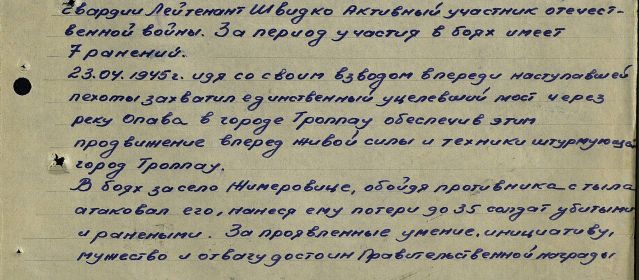 Гвардии Лейтенант Швидко Активный участник отечест-
венной войны. За период участия в боях имеет
7 ранений.
23.04.1945г. идя со своим взводом впереди наступавшей
пехоты захватил единственный уцелевший мост через
реку Опава в городе Троппау обеспечив этим
продвижение вперед живой силы и техники штурмующей
город Троппау.
В боях за село Жимеровице, обойдя противника с тыла
атаковал его, нанеся ему потери до 35 солдат убитыми
и ранеными. За проявленные умение, инициативу,
мужество и отвагу достоин Правительственной награды